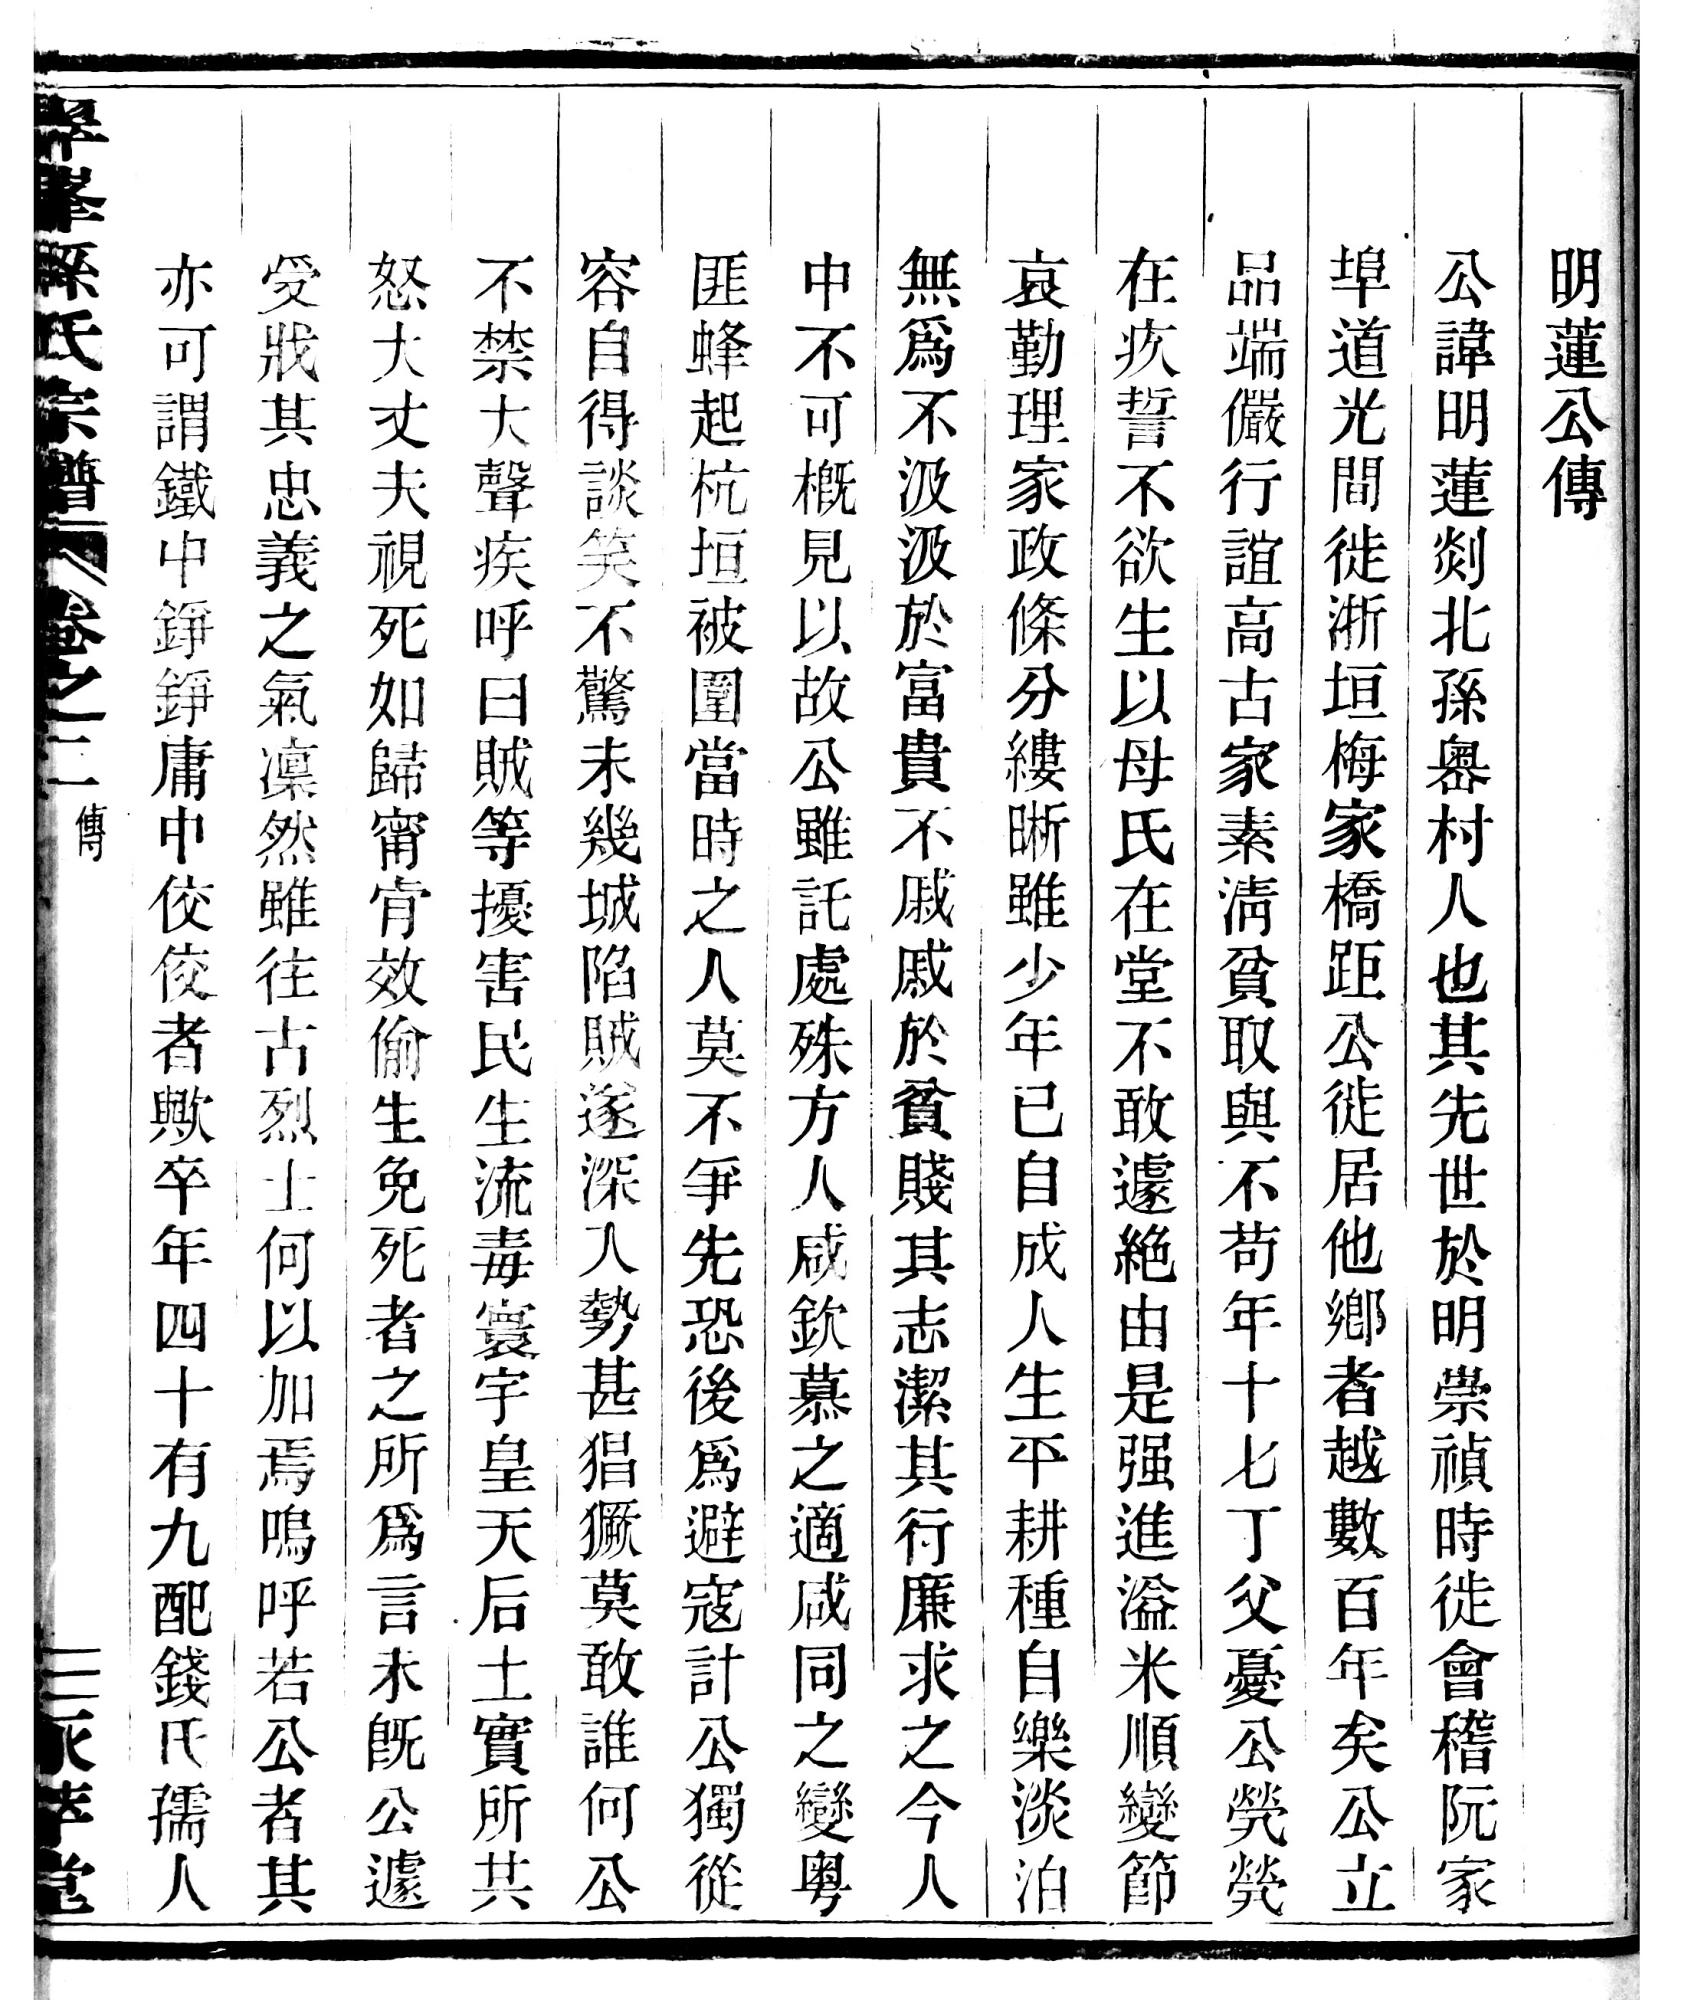 明蓮公傳
公諱明蓮剡北孫嶴村人也其先世於明崇禎時徙會稽阮家
埠道光間徙浙垣梅家橋距公徙居他鄉者越數百年矣公立
品端儼行誼高古家素淸貧取與不苟年十七丁父憂公煢煢
在疚誓不欲生以母氏在堂不敢遽絕由是强進溢米順變節
哀勤理家政條分縷晰雖少年已自成人生平耕種自樂淡泊
無爲不汲汲於富貴不戚戚於貧賤其志潔其行廉求之今人
中不可概見以故公雖託處殊方人咸欽慕之適咸同之變粤
匪蜂起杭垣被圍當時之人莫不爭先恐後爲避寇計公獨從
容自得談笑不驚未幾城陷賊遂深入勢甚猖獗莫敢誰何公
不禁大聲疾呼曰賊等擾害民生流毒寰宇皇天后土實所共
怒大丈夫視死如歸甯肯效偷生免死者之所爲言未旣公遽
受戕其忠義之氣凜然雖往古烈士何以加焉嗚呼若公者其
亦可謂鐵中錚錚庸中佼佼者歟卒年四十有九配錢氏孺人
峯孫氏宗譜 卷之二 傳 三 永萃堂